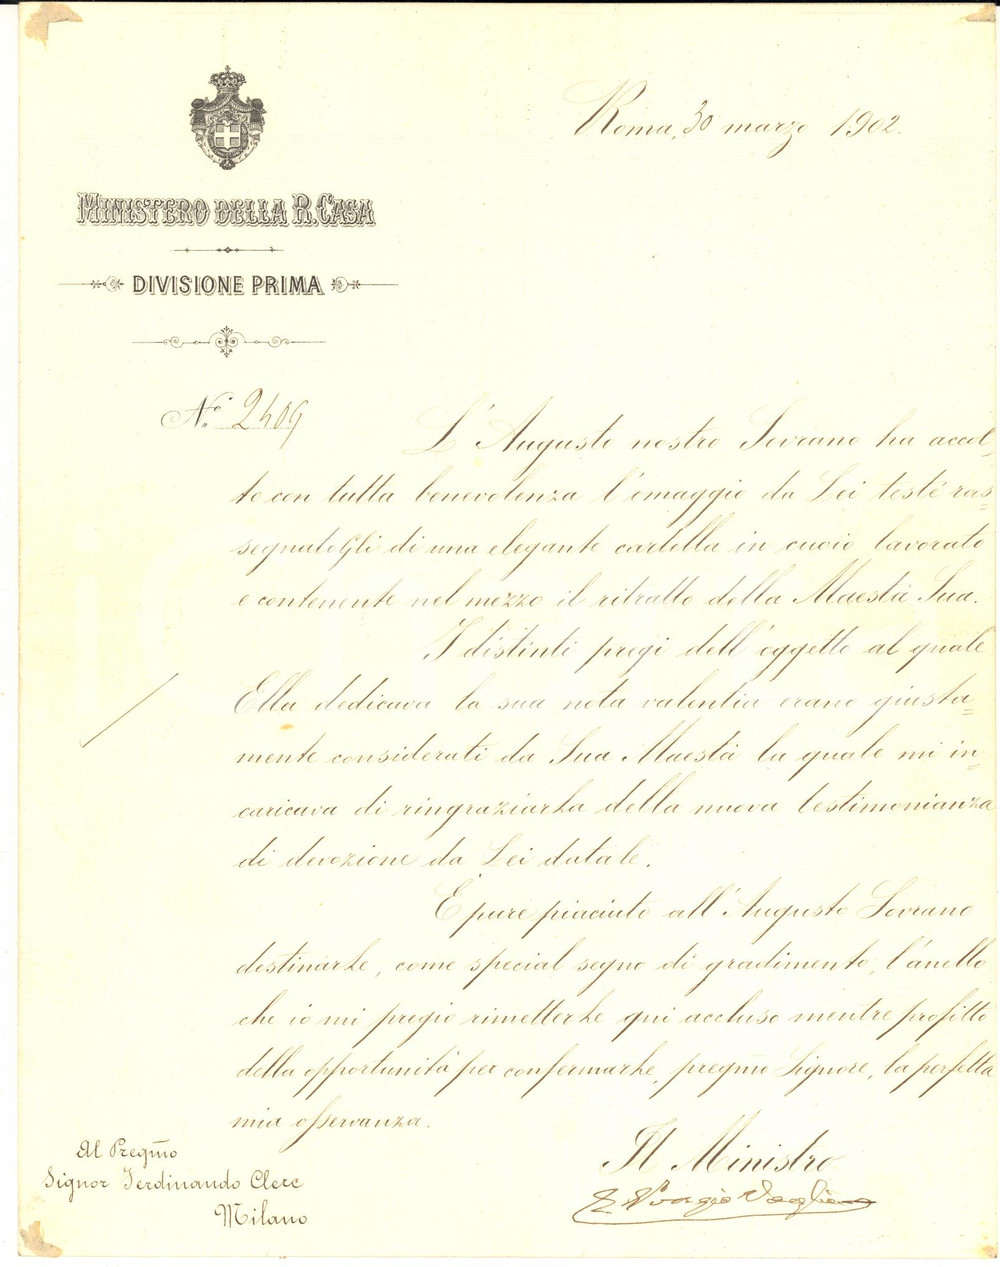 Roma, 30 marzo 1902.
MINISTERO DELLA R. CASA
DIVISIONE PRIMA
N.º 2409
L'Augusto nostro Sovrano ha accol-
to con tutta benevolenza l'omaggio da Lei testè ras=
segnatoGli di una elegante cartella in cuoio lavorato
e contenente nel mezzo il ritratto della Maestà Sua.
I distinti pregi dell'oggetto al quale
Ella dedicava la sua nota valentia erano giusta=
mente considerati da Sua Maestà la quale mi in=
caricava di ringraziarLa della nuova testimonianza
di devozione da Lei dataLe.
E pure piaciuto all'Augusto Sovrano
destinarLe, come special segno di gradimento, l'anello
che io mi pregio rimetterLe qui accluso mentre profitto
della opportunità per confermarLe, pregmo Signore, la perfetta
mia osservanza.
Il Ministro
Al Pregmo
Signor Ferdinando Clerc
Milano